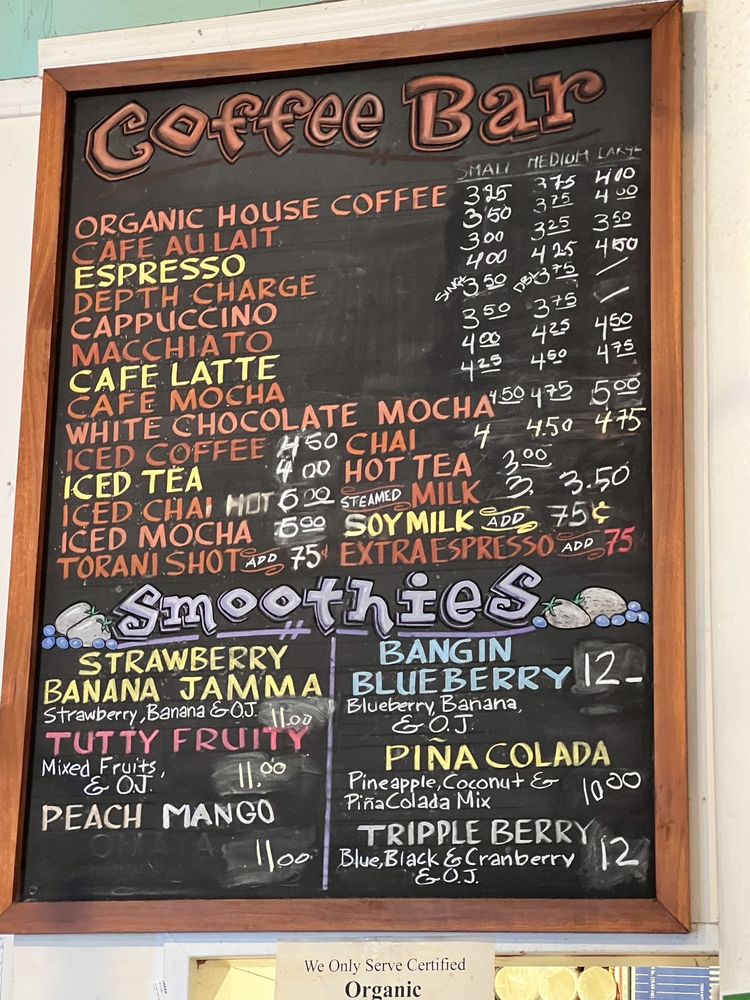 Coffee Bar
SMALL MEDIUM LARGE
ORGANIC HOUSE COFFEE 325 375 400
CAFE AU LAIT 350 375 400
ESPRESSO 300 325 350
DEPTH CHARGE 400 425 450
CAPPUCCINO SINGLE 350 DBL 375 /
MACCHIATO 350 375 /
CAFE LATTE 400 425 450
CAFE MOCHA 425 450 475
WHITE CHOCOLATE MOCHA 4.50 475 500
ICED COFFEE 450 CHAI 4 4.50 4.75
ICED TEA 400 HOT TEA 300
ICED CHAI HOT STEAMED MILK 3. 3.50
ICED MOCHA SOY MILK ADD 75¢
TORANI SHOT ADD 75¢ EXTRA ESPRESSO ADD 75
Smoothies
STRAWBERRY
BANANA JAMMA
Strawberry, Banana & O.J. 11.00
TUTTY FRUITY
Mixed Fruits,
& O.J. 11.00
PEACH MANGO
11.00
BANGIN
BLUEBERRY 12-
Blueberry, Banana,
& O.J.
PIÑA COLADA
Pineapple, Coconut &
Piña Colada Mix 1000
TRIPPLE BERRY
Blue, Black & Cranberry 12
& O.J.
We Only Serve Certified
Organic